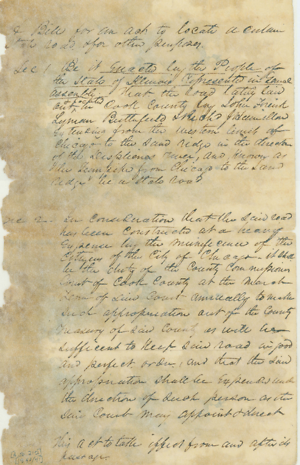 A Bill for an act to locate a certain
road & for other purposes.
Sec 1 Be it Enacted by the People of
the State of Illinois, Represented in General
assembly, That the road lately laid
out in Cook County, by John Frink
Lyman Butterfield &
Extending from the western limits of
Chicago to the Sand Ridge in the direction
of the Desplaines river, and known as
the from Chicago to the Sand
Ridge be a State road
Sec 2. In consideration that the said road
has been constructed at a heavy
Expense by the munificence of the
Citizens of the City of Chicago it shall
be the duty of the County Commissioners
Court of Cook County at the March
Term of said Court annually to make
such appropriation out of the County
Treasury of said County as will be
sufficient to keep said road in good
and perfect order, and that the said
appropriation shall be Expended under
the direction of such person as the
said Court may appoint & direct
This act to take effect from and after its
passage.